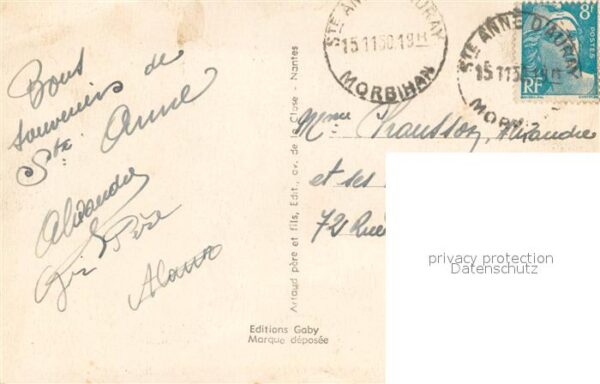 Bons
souvenirs de
Ste Anne
Alexandre
Père
STE ANNE D'AURAY
15 11 50 19H
MORBIHAN
STE ANNE D'AURAY
15 11 50 19H
MORBIHAN
8F
POSTES
RF
Mme Chausson,
et ses
72 Rue
privacy protection
Datenschutz
Artaud père et fils, Edit., av. de la Close - Nantes
Editions Gaby
Marque déposée